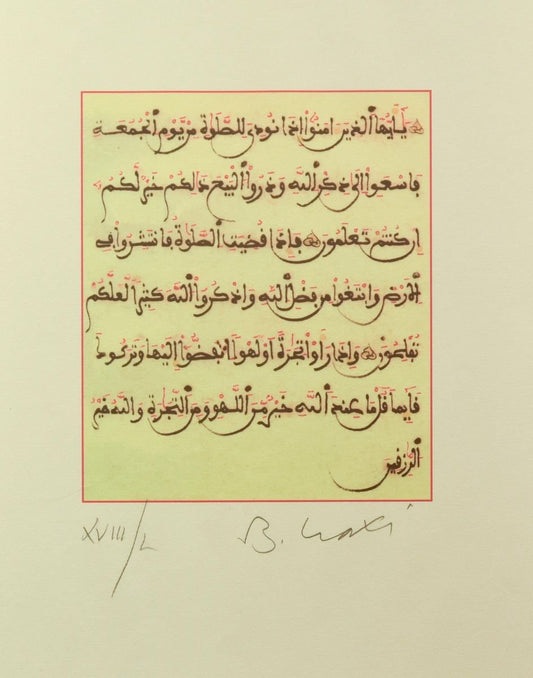 يَٰأَيُّهَا اَ۬لذِينَ ءَامَنُوٓاْ إِذَا نُودِيَ لِلصَّلَوٰةِ مِنْ يَّوْمِ اِ۬لْجُمُعَةِ
فَاسْعَوِاْ اِلَىٰ ذِكْرِ اِ۬للَّهِ وَذَرُواْ اُ۬لْبَيْعَ ذَٰلِكُمْ خَيْرٌ لَّكُمُۥٓ
إِن كُنتُمْ تَعْلَمُونَ فَإِذَا قُضِيَتِ اِ۬لصَّلَوٰةُ فَانتَشِرُواْ فِي
اِ۬لَارْضِ وَابْتَغُواْ مِن فَضْلِ اِ۬للَّهِ وَاذْكُرُواْ اُ۬للَّهَ كَثِيراً لَّعَلَّكُمْ
تُفْلِحُونَ وَإِذَا رَأَوْاْ تِجَٰرَةً اَوْ لَهْواً اِ۪نفَضُّوٓاْ إِلَيْهَا وَتَرَكُوكَ
قَآئِماً قُلْ مَا عِندَ اَ۬للَّهِ خَيْرٌ مِّنَ اَ۬للَّهْوِ وَمِنَ اَ۬لتِّجَٰرَةِ وَاللَّهُ خَيْرُ
اُ۬لرَّٰزِقِينَ
XVIII/L B.